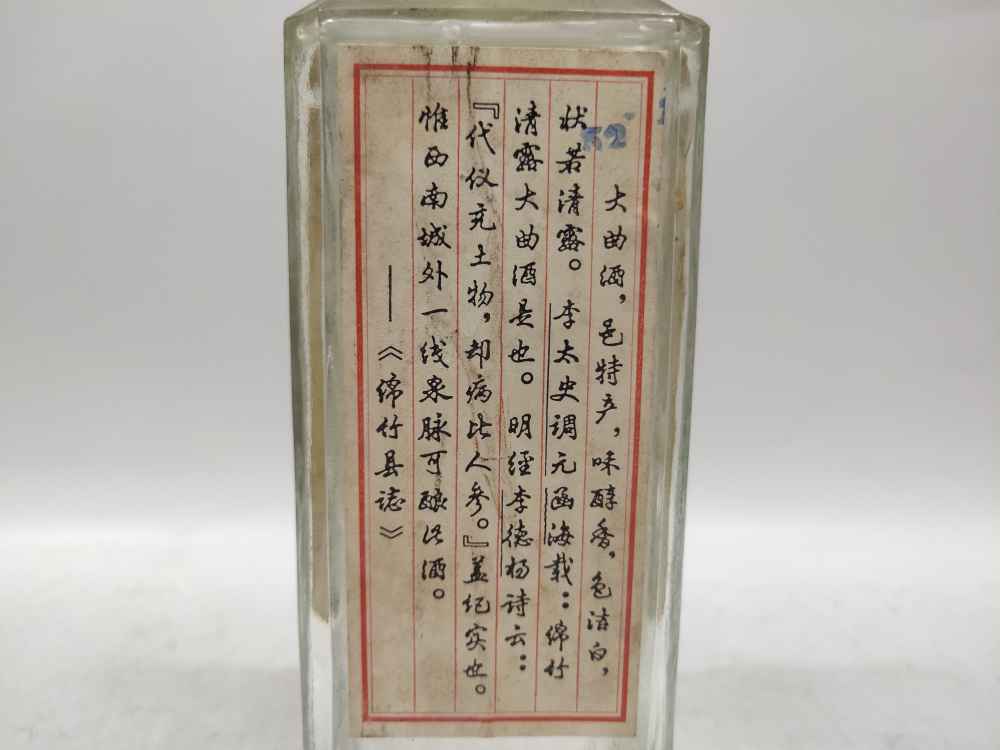 大曲酒，邑特产，味醇香，色洁白，
状若清露。李太史调元函海载：绵竹
清露大曲酒是也。明经李德杨诗云：
『代仪充土物，却病比人参。』盖纪实也。
惟西南城外一线泉脉可酿此酒。
——《绵竹县志》
52